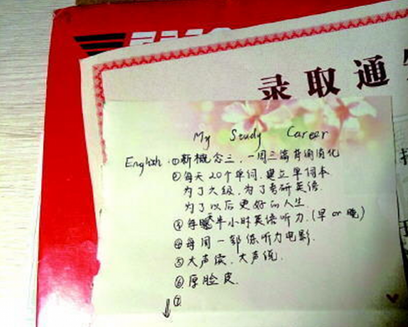 EMS
录取通
My Study Career
English: ①新概念三，一周三篇背诵消化
②每天20个单词，建立单词本
为了六级，为了考研英语
为了以后更好的人生
③每晚半小时英语听力（早 or 晚）
④每周一部练听力电影
⑤大声读，大声说
⑥厚脸皮
⑦